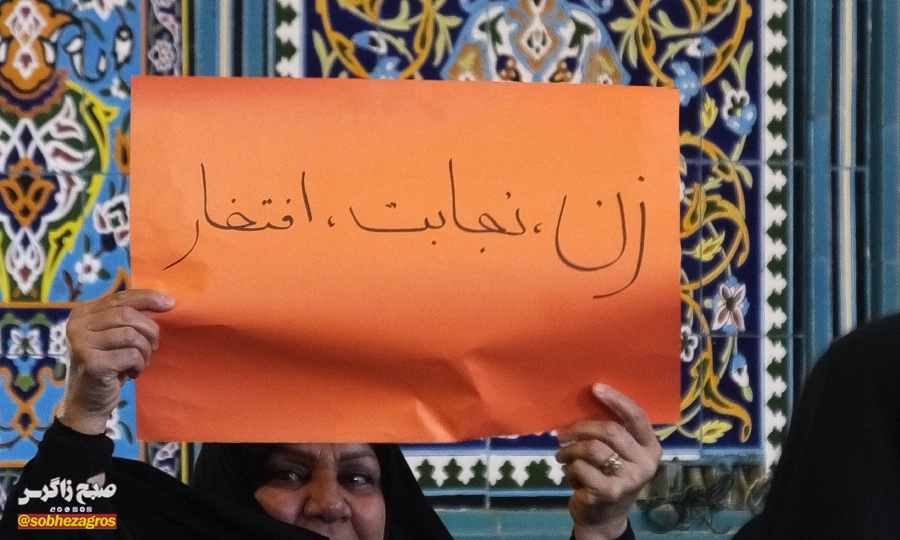 زن، نجابت، افتخار
صبح زاگرس
@sobhezagros